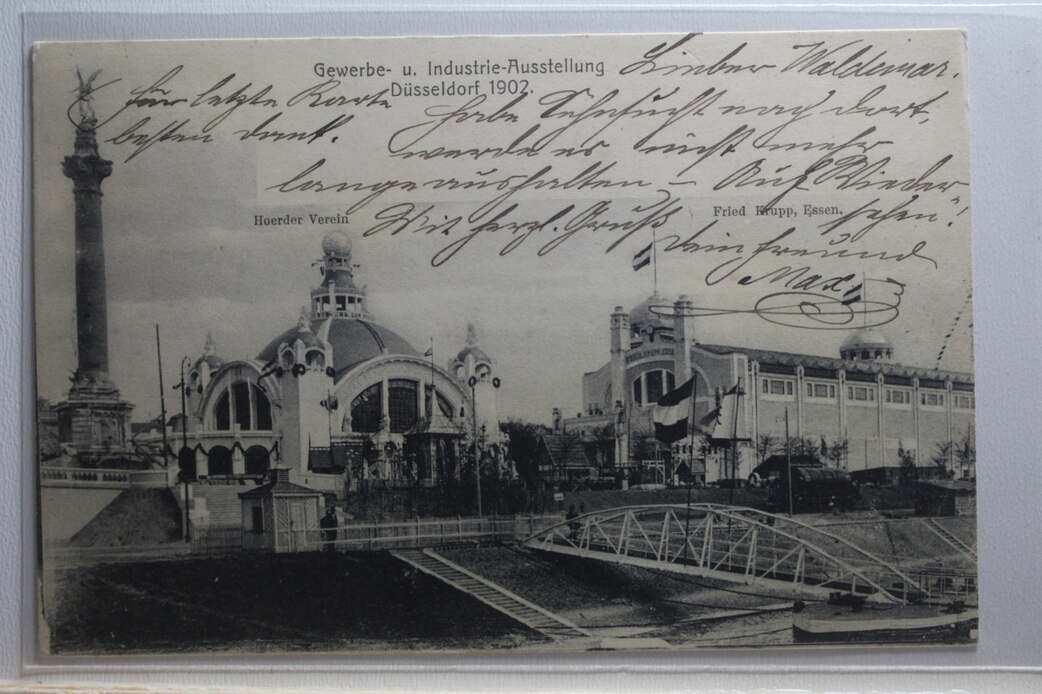 Gewerbe- u. Industrie-Ausstellung
Düsseldorf 1902.
Lieber Waldemar.
für letzte Karte
besten Dank.
Habe Sehnsucht nach dort,
werde es nicht mehr
lange aushalten – Auf Wieder
sehen"!
Mit herzl. Gruß
Dein Freund
Max
Hoerder Verein
Fried Krupp, Essen.